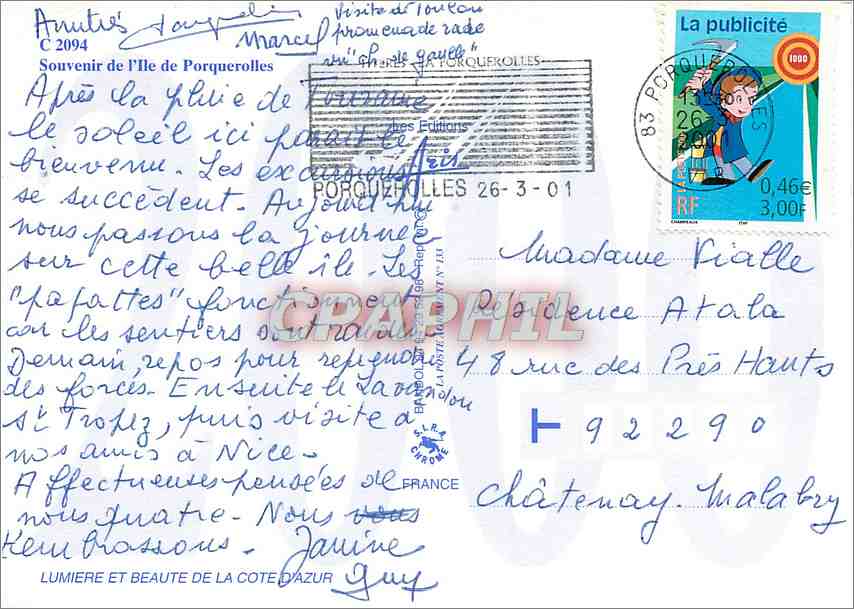 Visite de Toulon
promenade rade
Marcel
C 2094
Souvenir de l'Ile de Porquerolles
HYERES PORQUEROLLES
Après la pluie de Touraine
le soleil ici paraît le
bienvenu. Les excursions
se succèdent. Aujourd'hui
nous passons la journée
sur cette belle île. Les
"papattes" fonctionnent
car les sentiers sont raides
Demain, repos pour reprendre
des forces. Ensuite le Lavandou
St Tropez, puis visite à
nos amis à Nice.
Affectueuses pensées de
nous quatre. Nous vous
embrassons. Janine
Guy
LUMIERE ET BEAUTE DE LA COTE D'AZUR
Les Editions
Aris
PORQUEROLLES 26-3-01
BANDOL
LA POSTE AGREMENT N° 133
S.L.R.A.
CHROME
FRANCE
CPAPHIL
La publicité
1000
83 PORQUEROLLES
26-3
LA POSTE
RF
0,46€
3,00F
Madame Vialle
Résidence Atala
48 rue des Prés Hauts
92290
Châtenay-Malabry